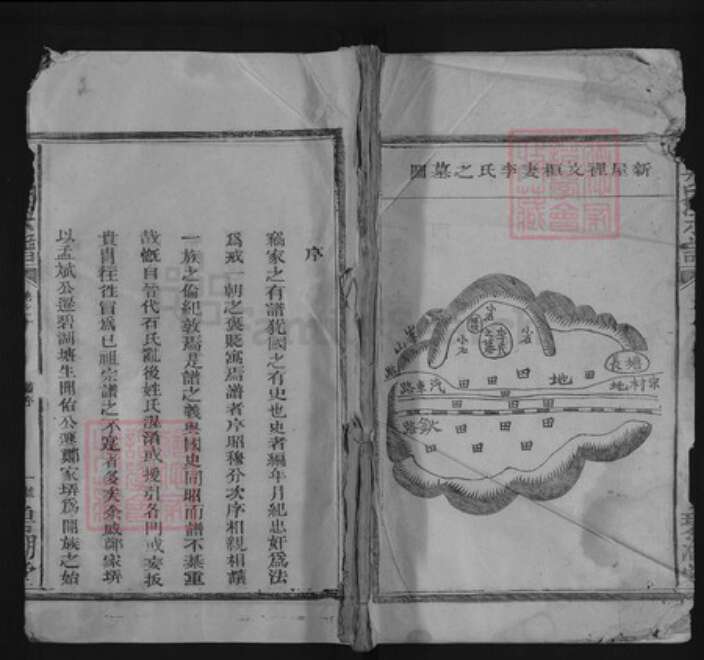 新屋裡文桓妻李氏之墓圖
長塘
小石
小石
地
田
田
田
田
田
宗村地
汽車路
田
田
田
田
田
鉄路
田
田
田
田
田
田
序
竊家之有譜猶國之有史也史者編年月紀忠奸為法
為戒一朝之褒貶寓焉譜者序昭穆分次序相親相讓
一族之倫紀敦焉是譜之義與國史同昭而譜不綦重
哉慨自晉代石氏亂後姓氏混淆或援引名門或妄扳
貴胄往往冒為已祖宗譜之不寔者多矣余戚鄭家塝
以孟斌公遷碧澗塘生開佑公遷鄭家塝為開族之始